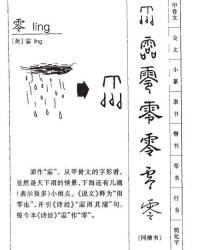 零 líng
[附] 霝 líng
原作“霝”。从甲骨文的字形看，
显然是天下雨的情景，下面还有几滴
（表示很多）小雨点。《说文》释为“雨
零也”，并引《诗经》“霝雨其濛”句。
按今本《诗经》“霝”作“零”。
零
零
零
零
（同楷书）
甲骨文
金文
小篆
隶书
楷书
草书
行书
简化字